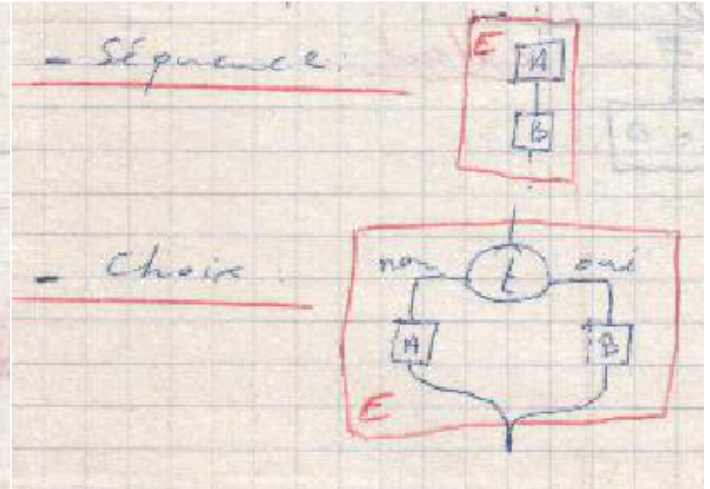 - Séquence:
E
A
B
- Choix:
non t oui
A B
E